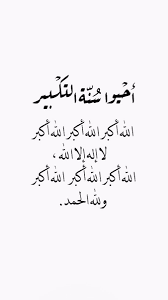 أحيوا سُنّة التكبير
الله أكبر الله أكبر الله أكبر
لا إله إلا الله ،
الله أكبر الله أكبر الله أكبر
ولله الحمد .